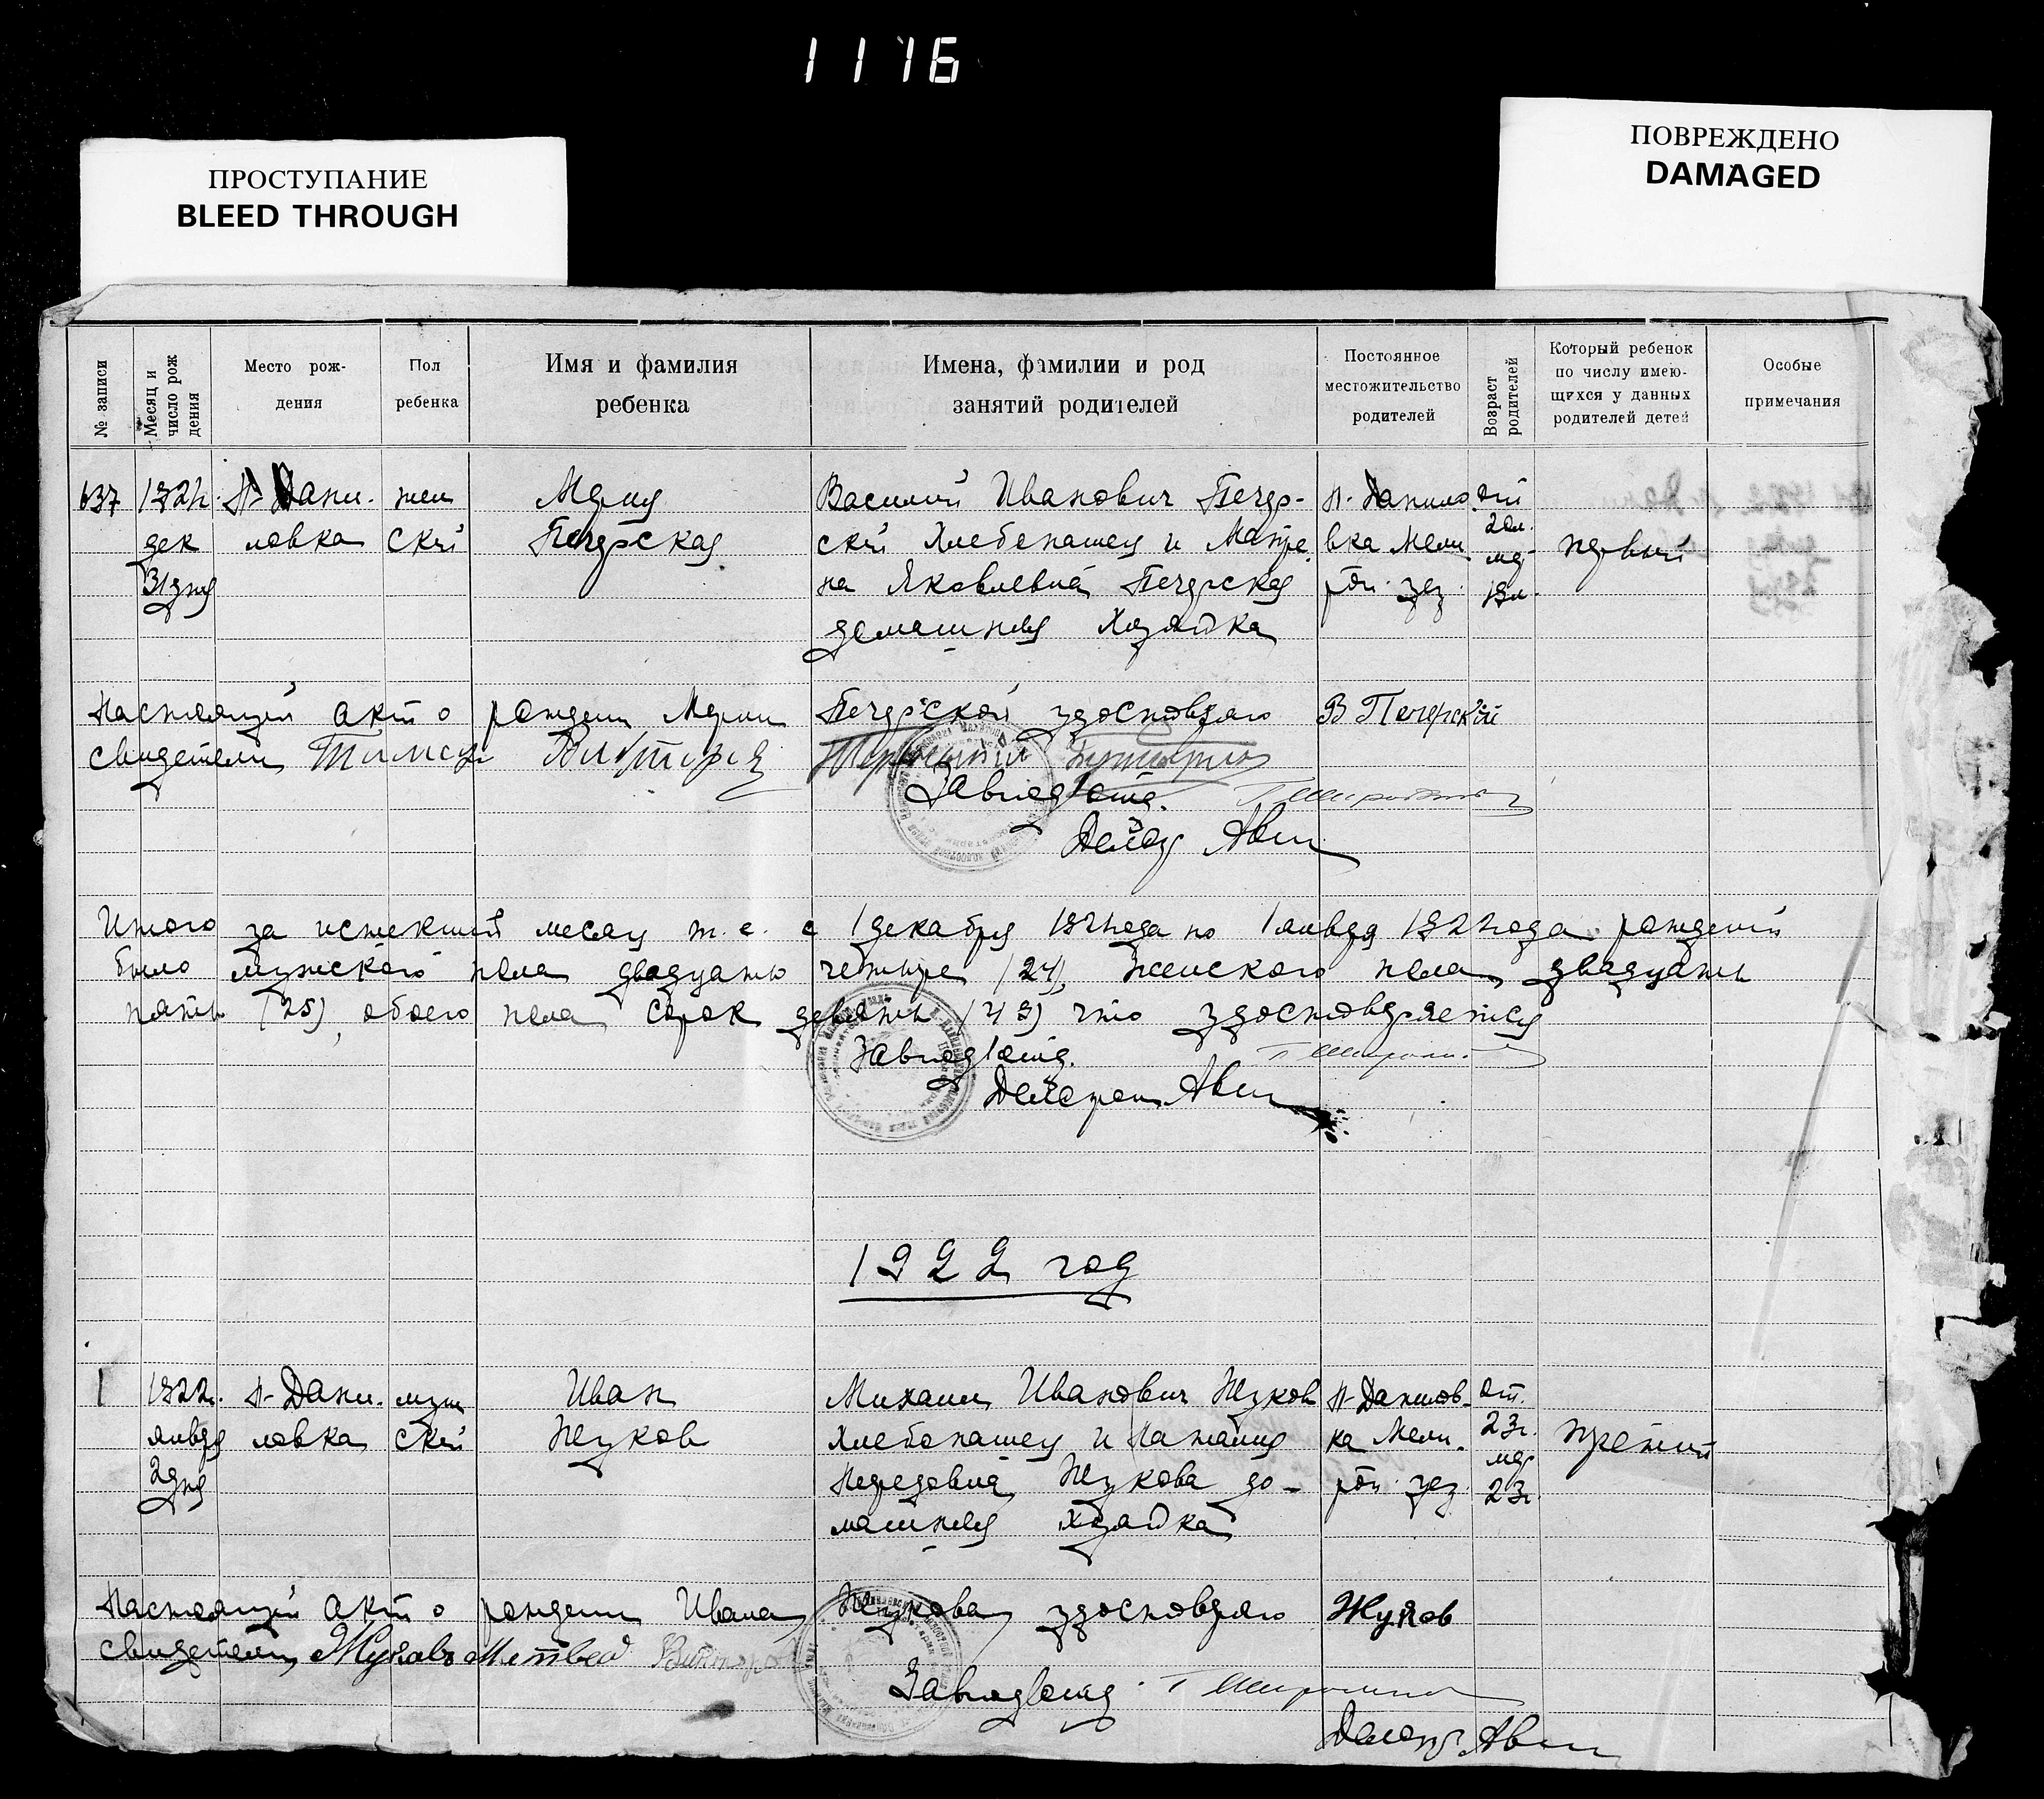 1116
ПРОСТУПАНИЕ
BLEED THROUGH
ПОВРЕЖДЕНО
DAMAGED
№ записи
Месяц и число рождения
Место рож-
дения
Пол
ребенка
Имя и фамилия
ребенка
Имена, фамилии и род
занятий родителей
Постоянное
местожительство
родителей
Возраст
родителей
Который ребенок
по числу имею-
щихся у данных
родителей детей
Особые
примечания
637
дек
31 дня
Дани-
ловка
жен
ский
Мария
Печерская
Василий Иванович Печер-
ский Хлебопашец и Матре
на Яковлевна Печерская
домашняя Хозяйка
Данило
вка Мели
уез.
от
20л.
мат
19л.
первый
Настоящий акт о рождении Марии Печерской удостоверяю В Печерский
свидетели
Завподотд.
Итого за истекший месяц т. е. с 1 декабря 1921 года по 1 января 1922 года рождений
было мужского пола двадцать четыре (24), женского пола двадцать
пять (25), обоего пола сорок девять (49) что удостоверяется
Завподотд.
1922 год
1
1922г.
января
2 дня
Дани-
ловка
муж
ской
Иван
Жуков
Михаил Иванович Жуков
Хлебопашец и Наталия
Жукова до-
машняя хозяйка
Данилов-
ка Мели-
уез.
от.
23г.
мат
23г.
третий
Настоящий акт о рождении Ивана Жукова удостоверяю Жуков
свидетели Жуков Матвей
Завподотд.